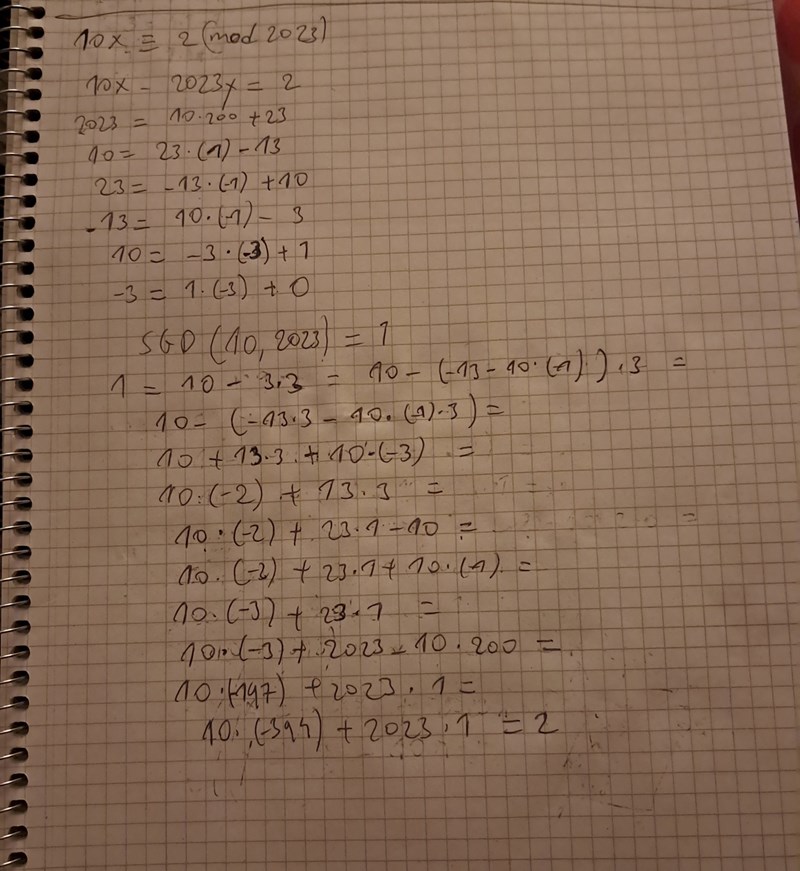 10x ≡ 2 (mod 2023)
10x - 2023y = 2
2023 = 10·200 + 23
10 = 23·(1) - 13
23 = -13·(-1) + 10
-13 = 10·(-1) - 3
10 = -3·(-3) + 1
-3 = 1·(-3) + 0
SGD (10, 2023) = 1
1 = 10 - 3·3 = 10 - (-13 - 10·(-1))·3 =
10 - (-13·3 - 10·(-1)·3) =
10 + 13·3 + 10·(-3) =
10·(-2) + 13·3 =
10·(-2) + 23·1 - 10 =
10·(-2) + 23·1 + 10·(-1) =
10·(-3) + 23·1 =
10·(-3) + 2023 - 10·200 =
10·(-197) + 2023·1 =
10·(-394) + 2023·1 = 2